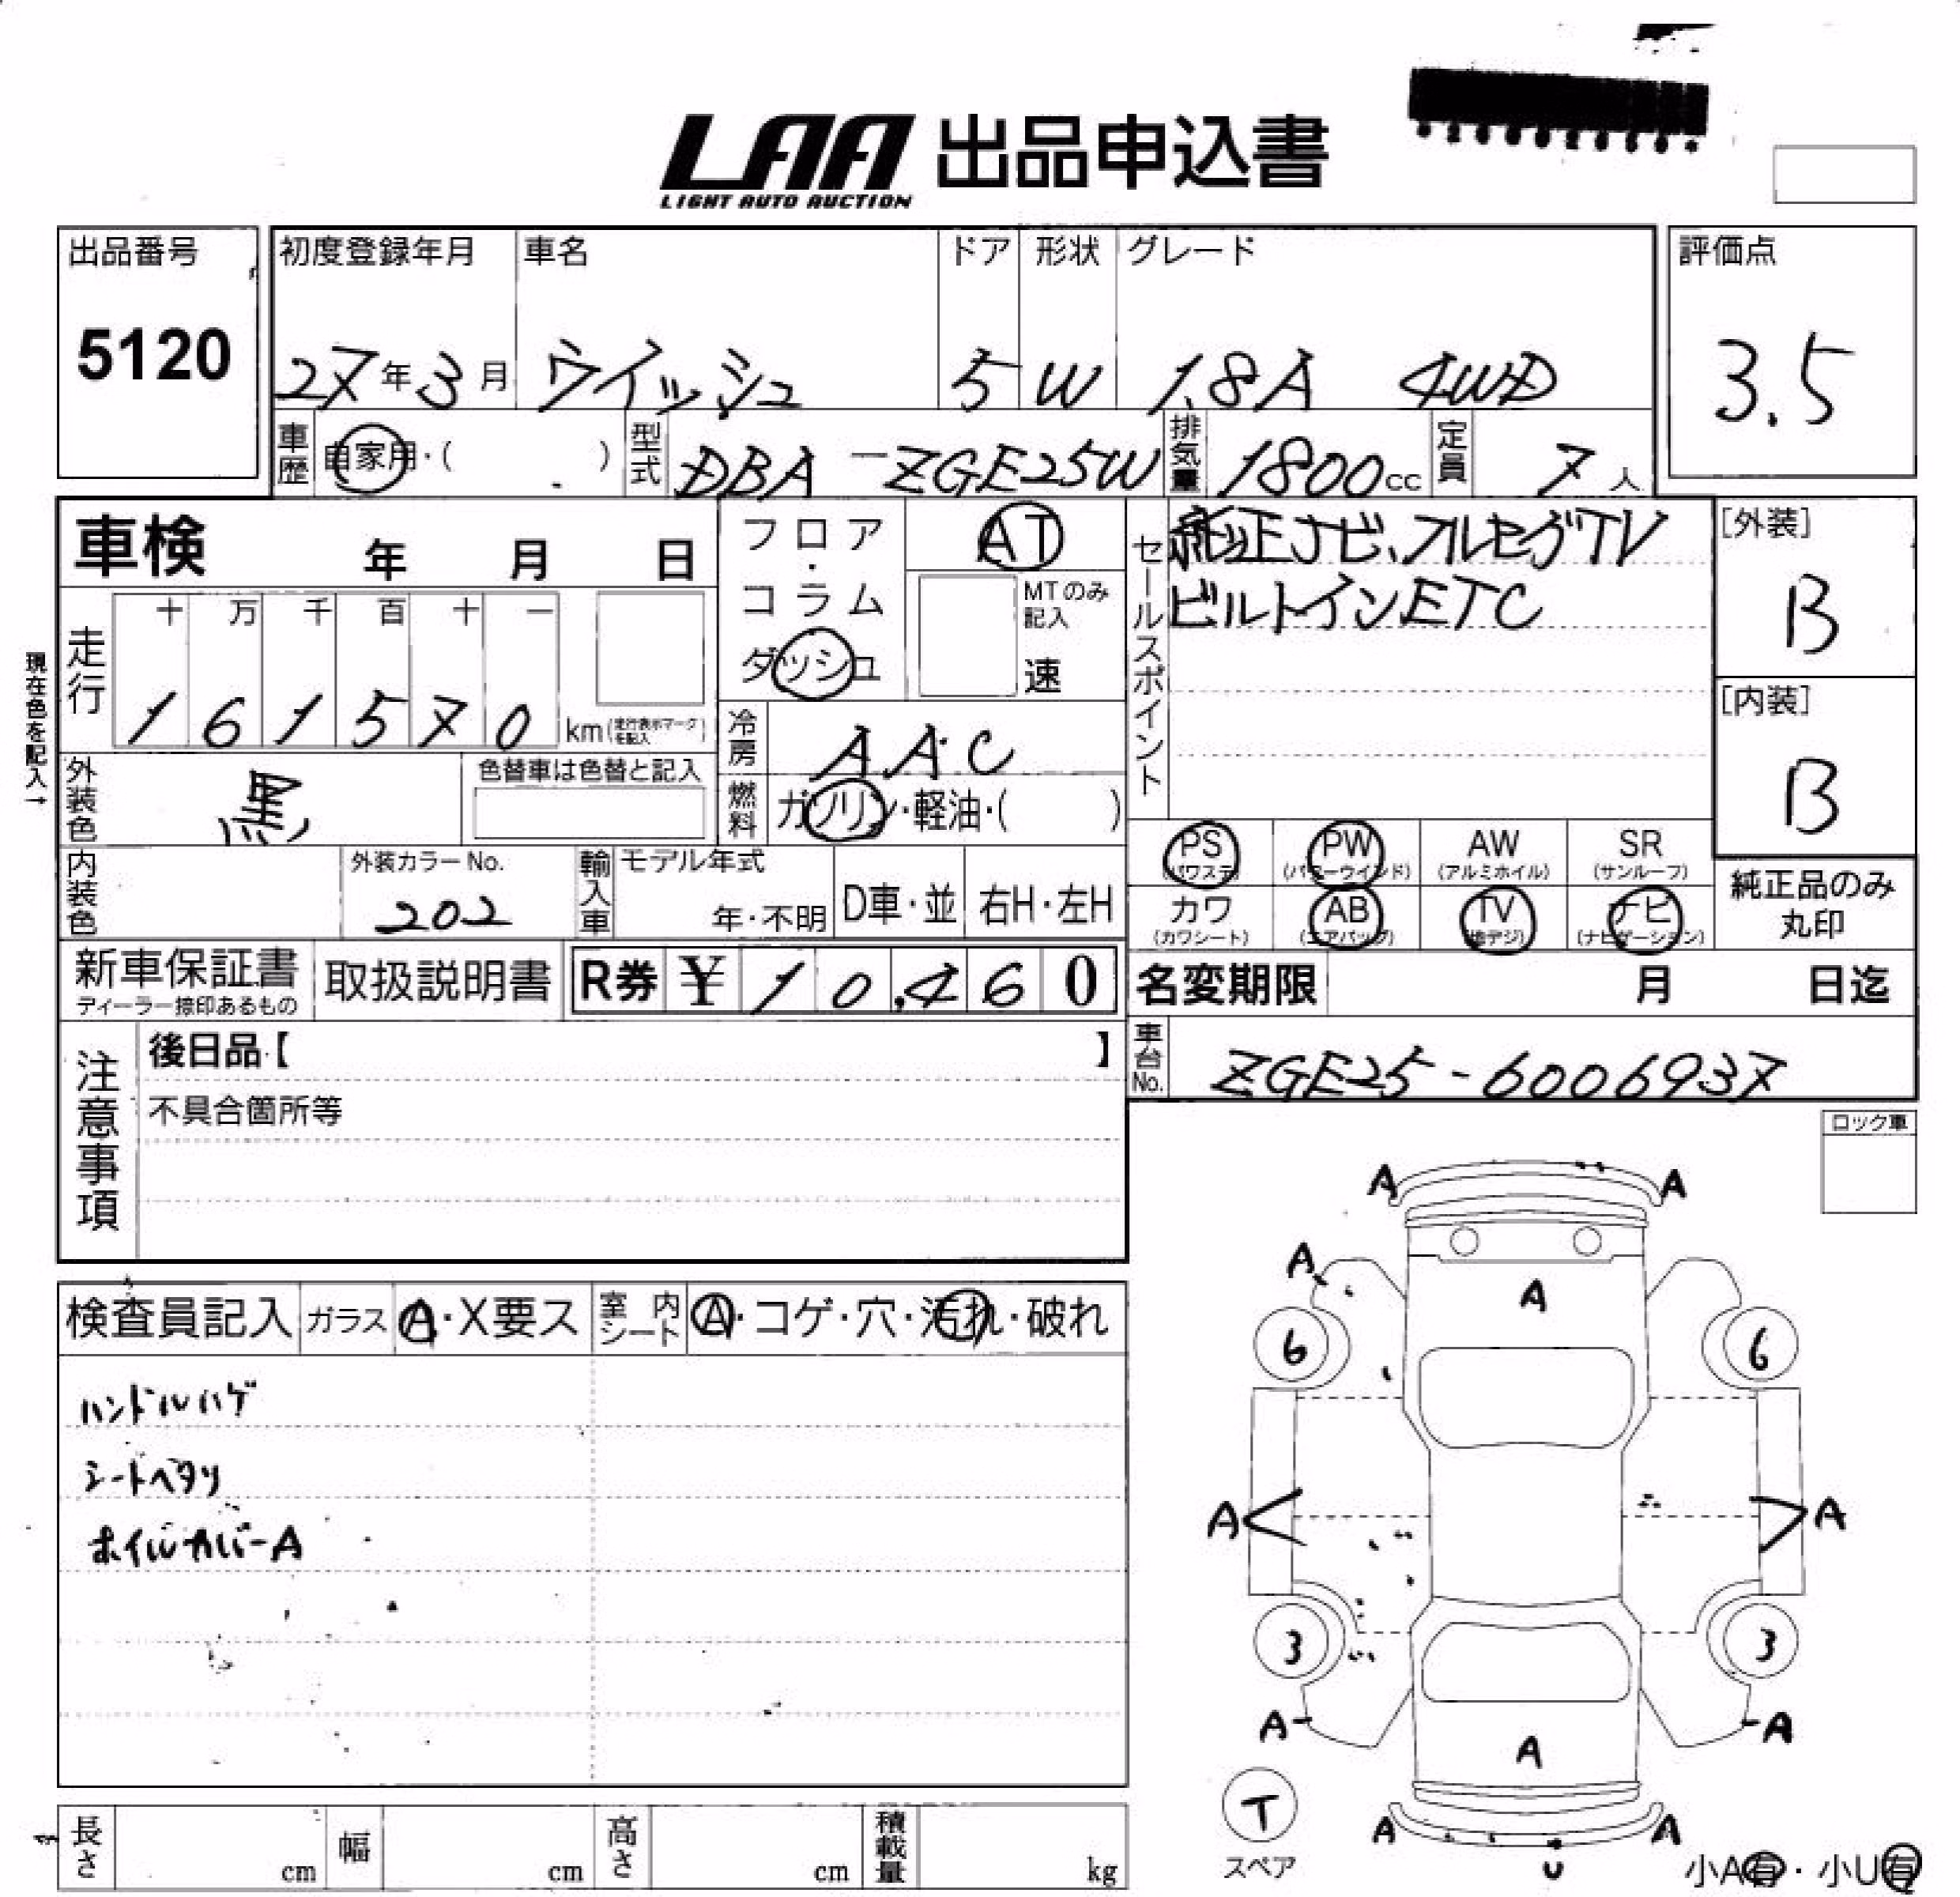 LAA 出品申込書
LIGHT AUTO AUCTION
出品番号 初度登録年月 車名 ドア 形状 グレード 評価点
5120 27年3月 ウイッシュ 5 W 1.8A 4WD 3.5
車歴 自家用・( ) 型式 DBA-ZGE25W 排気量 1800cc 定員 7人
車検 年 月 日
フロア・コラム
ダッシュ
AT
MTのみ記入
速
セールスポイント
純正ナビ、フルセグTV
ビルトインETC
[外装]
B
[内装]
B
現在色を記入→
走行 十 万 千 百 十 一
1 6 1 5 7 0 km(走行表示マークを記入)
冷房 AAC
外装色 黒 色替車は色替と記入
燃料 ガソリン・軽油・( )
PS (パワステ) PW (パワーウインド) AW (アルミホイル) SR (サンルーフ)
カワ (カワシート) AB (エアバッグ) TV (地デジ) ナビ (ナビゲーション)
純正品のみ
丸印
内装色 外装カラーNo. 202
輸入車 モデル年式 年・不明 D車・並 右H・左H
新車保証書 ディーラー捺印あるもの 取扱説明書 R券 ¥ 10,460
名変期限 月 日迄
車台No. ZGE25-6006937
注意事項
後日品【 】
不具合箇所等
ロック車
検査員記入 ガラス A・X要ス 室内シート A・コゲ・穴・汚れ・破れ
ハンドルハゲ
シートヘタリ
ホイルカバーA
A A
A
A
6 6
A A
3 3
A A
A
T
スペア
A A
U
小A有・小U有
長さ cm 幅 cm 高さ cm 積載量 kg